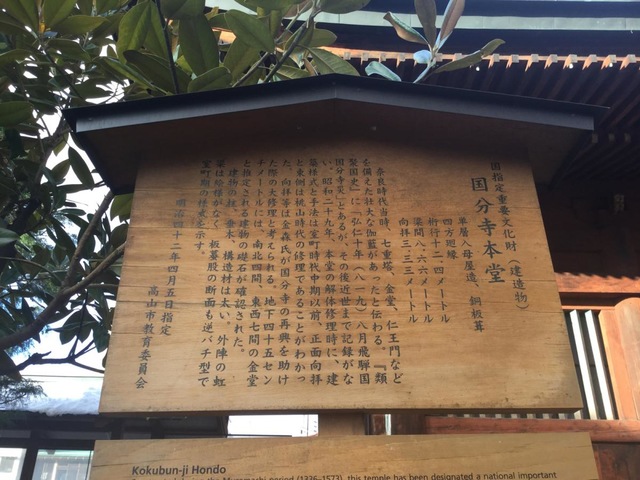 国指定重要文化財（建造物）
国分寺本堂
単層入母屋造、銅板葺
四方廻縁
桁行十二・四メートル
梁間八・六六メートル
向拝三・三三メートル
奈良時代当時、七重塔、金堂、仁王門など
を備えた壮大な伽藍があったと伝わる。『類
聚国史』に「弘仁十年（八一九）八月飛騨国
国分寺災」とあるが、その後近世まで記録がな
い。昭和二十九年、本堂の解体修理時に、建
築様式と手法は室町時代中期以前、正面向拝
と東側は桃山時代の修理であることがわかっ
た。向拝等は金森氏が国分寺の再興を助け
た際の大修理と考えられる。地下四十五セン
チメートルには、南北四間、東西七間の金堂
と推定される建物の礎石が確認された。
建物の柱、垂木、構造材は太い。外陣の虹
梁は絵様がなく、板蟇股の断面も逆バチ型で
室町期の様式を示す。
明治四十二年四月五日指定
高山市教育委員会
Kokubun-ji Hondo
the Muromachi period (1336–1573), this temple has been designated a national important